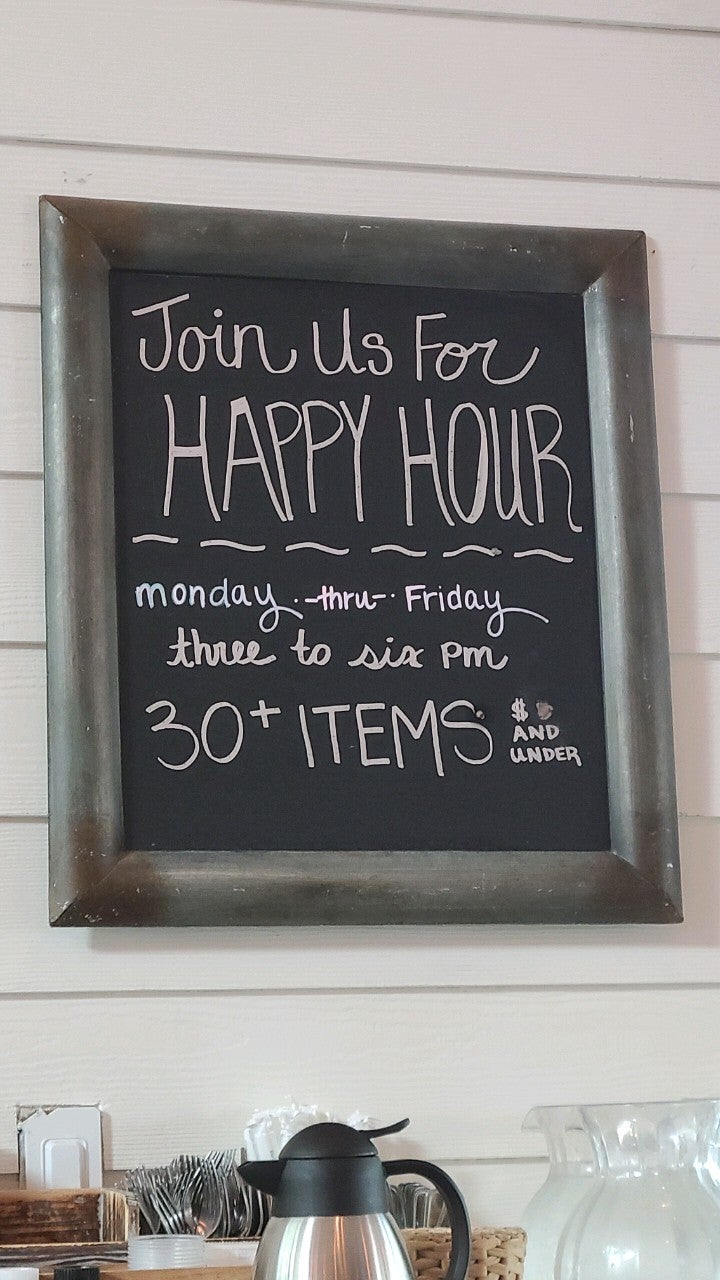 Join Us For
HAPPY HOUR
monday -thru- Friday
three to six pm
30+ ITEMS $
AND
UNDER